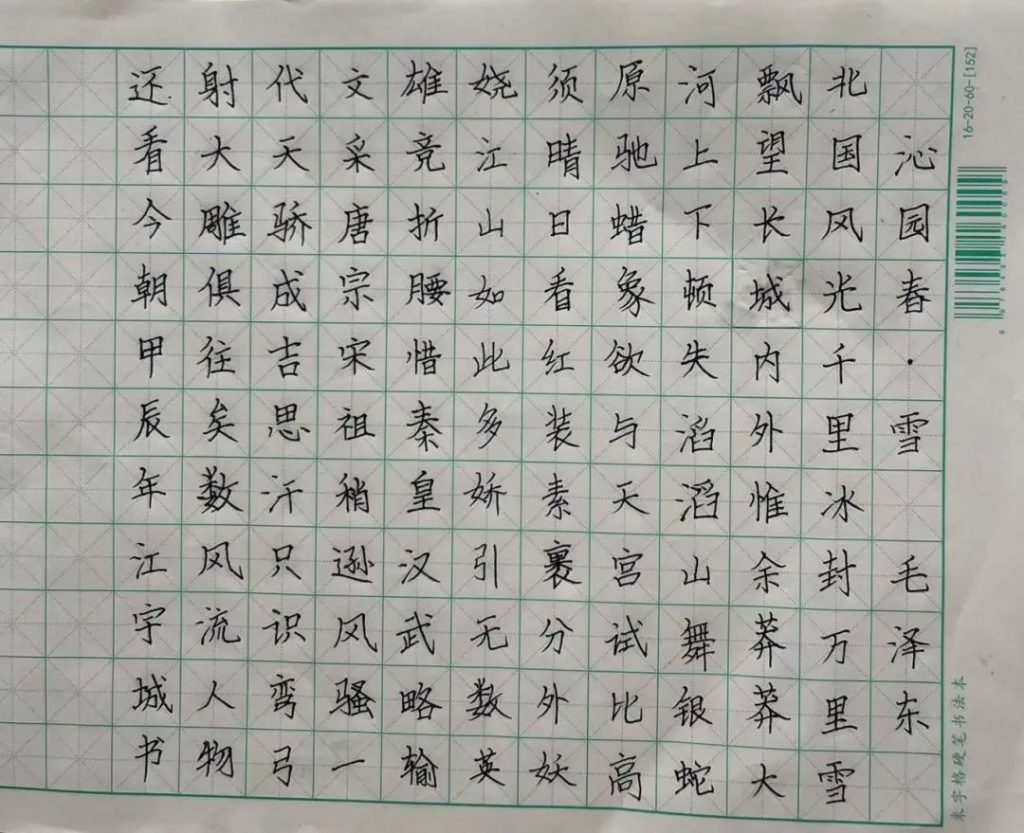 沁园春·雪 毛泽东
北国风光千里冰封万里雪
飘望长城内外惟余莽莽大
河上下顿失滔滔山舞银蛇
原驰蜡象欲与天宫试比高
须晴日看红装素裹分外妖
娆江山如此多娇引无数英
雄竞折腰惜秦皇汉武略输
文采唐宗宋祖稍逊风骚一
代天骄成吉思汗只识弯弓
射大雕俱往矣数风流人物
还看今朝甲辰年江宇城书
16-20-60-[152]
米字格硬笔书法本